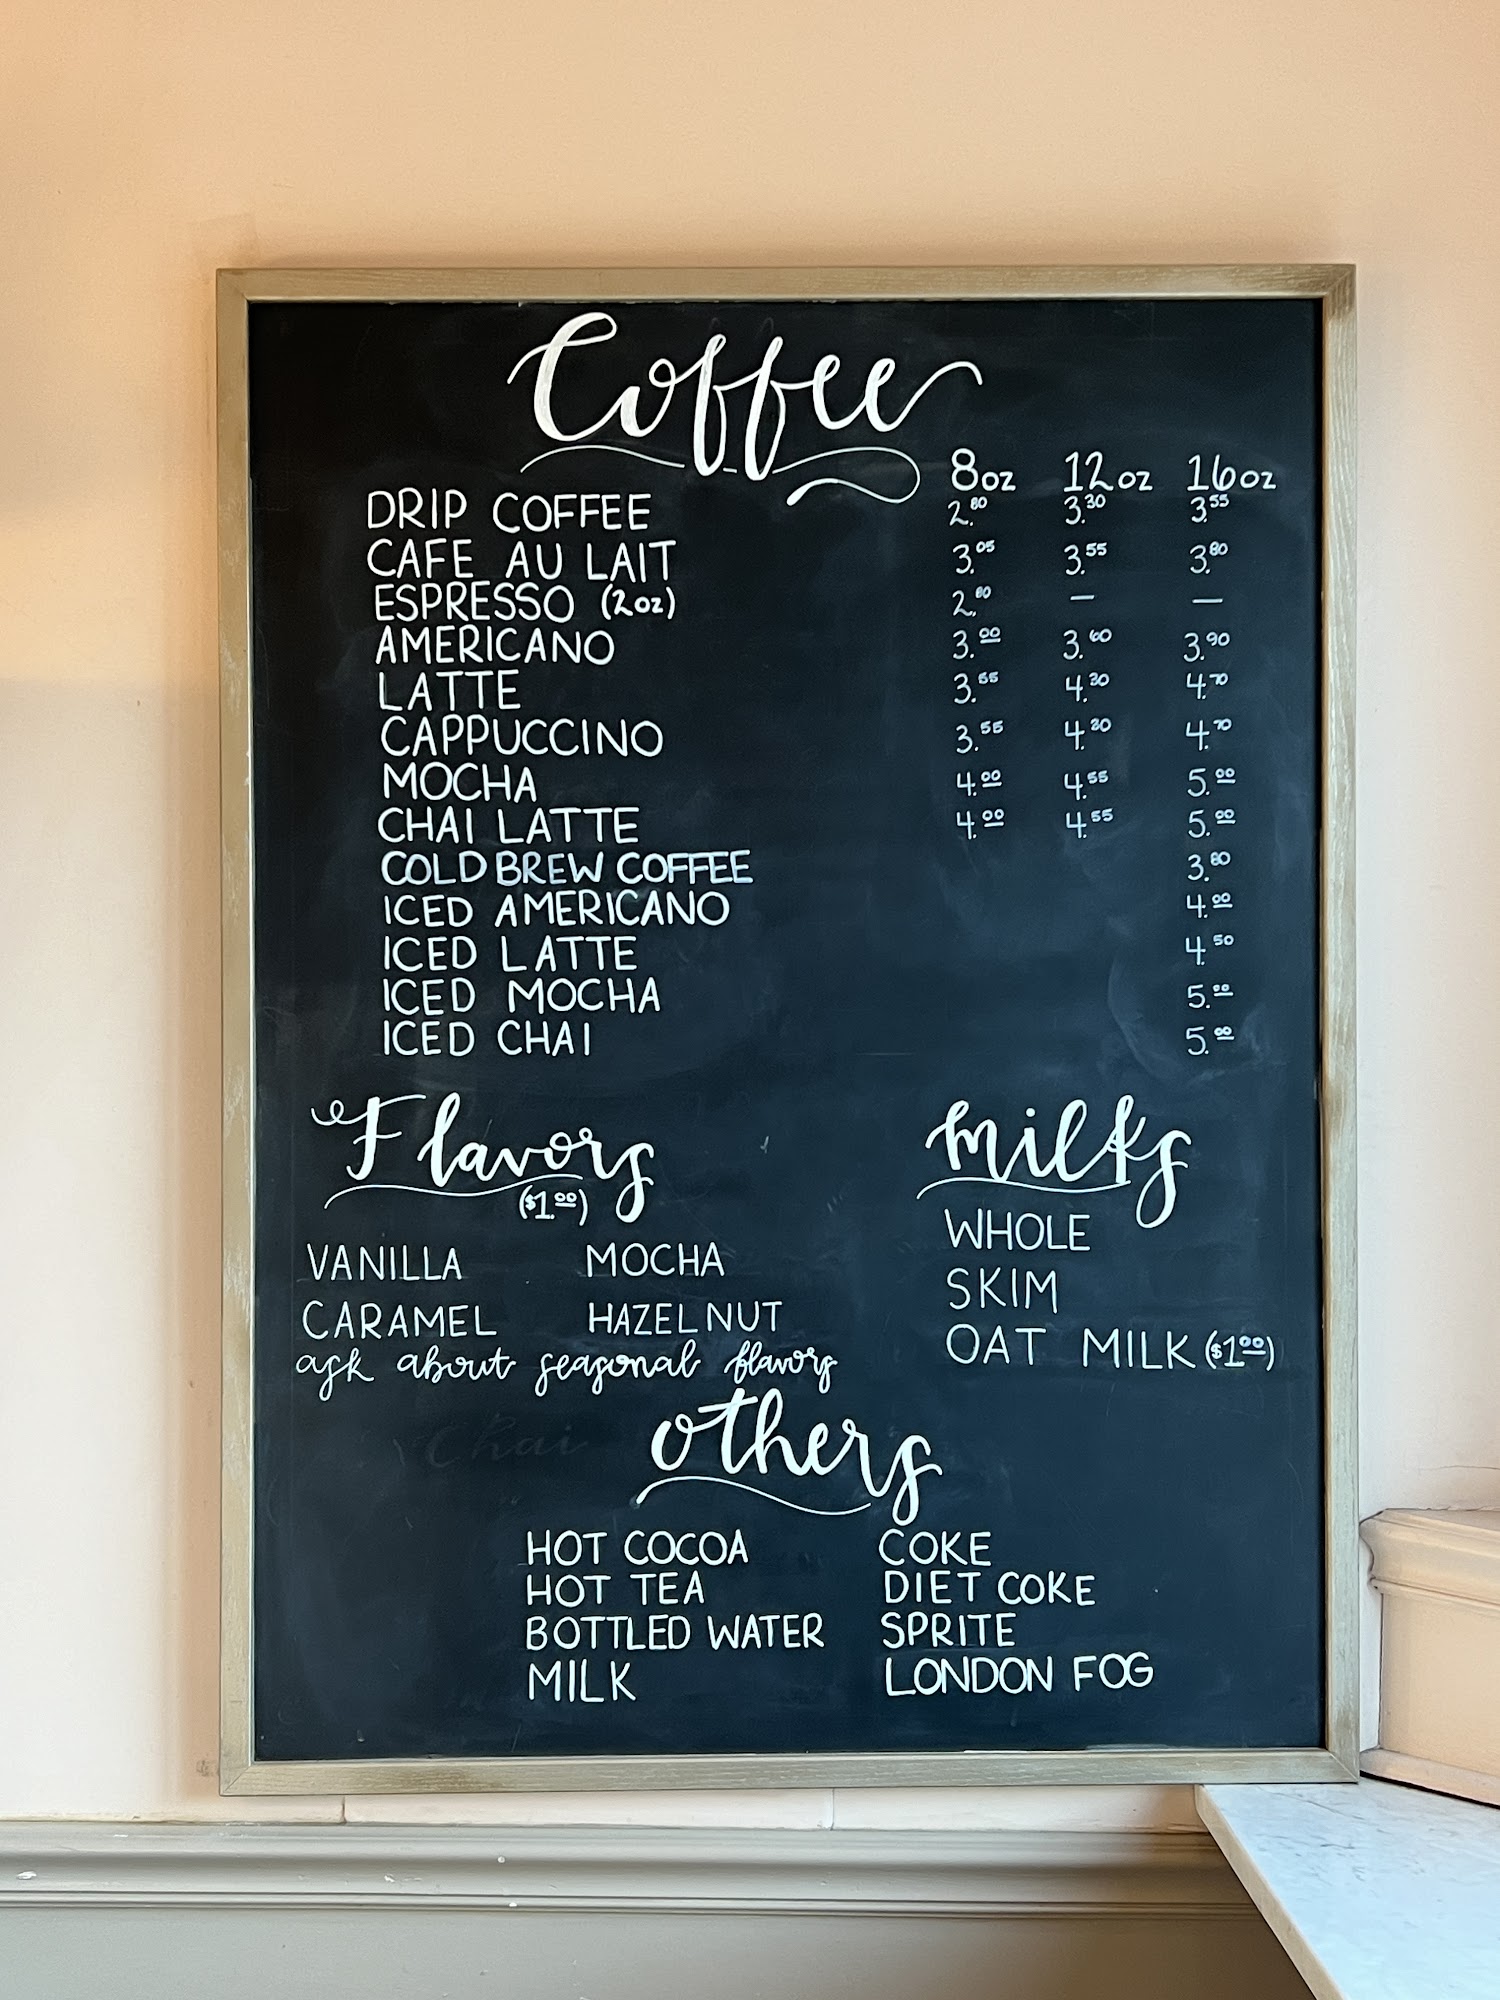 Coffee
8oz 12oz 16oz
DRIP COFFEE 2.80 3.30 3.55
CAFE AU LAIT 3.05 3.55 3.80
ESPRESSO (2oz) 2.80 — —
AMERICANO 3.00 3.60 3.90
LATTE 3.55 4.30 4.70
CAPPUCCINO 3.55 4.30 4.70
MOCHA 4.00 4.55 5.00
CHAI LATTE 4.00 4.55 5.00
COLD BREW COFFEE 3.80
ICED AMERICANO 4.00
ICED LATTE 4.50
ICED MOCHA 5.00
ICED CHAI 5.00
Flavors
($1.00)
VANILLA MOCHA
CARAMEL HAZELNUT
ask about seasonal flavors
Chai
Milks
WHOLE
SKIM
OAT MILK ($1.00)
Others
HOT COCOA COKE
HOT TEA DIET COKE
BOTTLED WATER SPRITE
MILK LONDON FOG